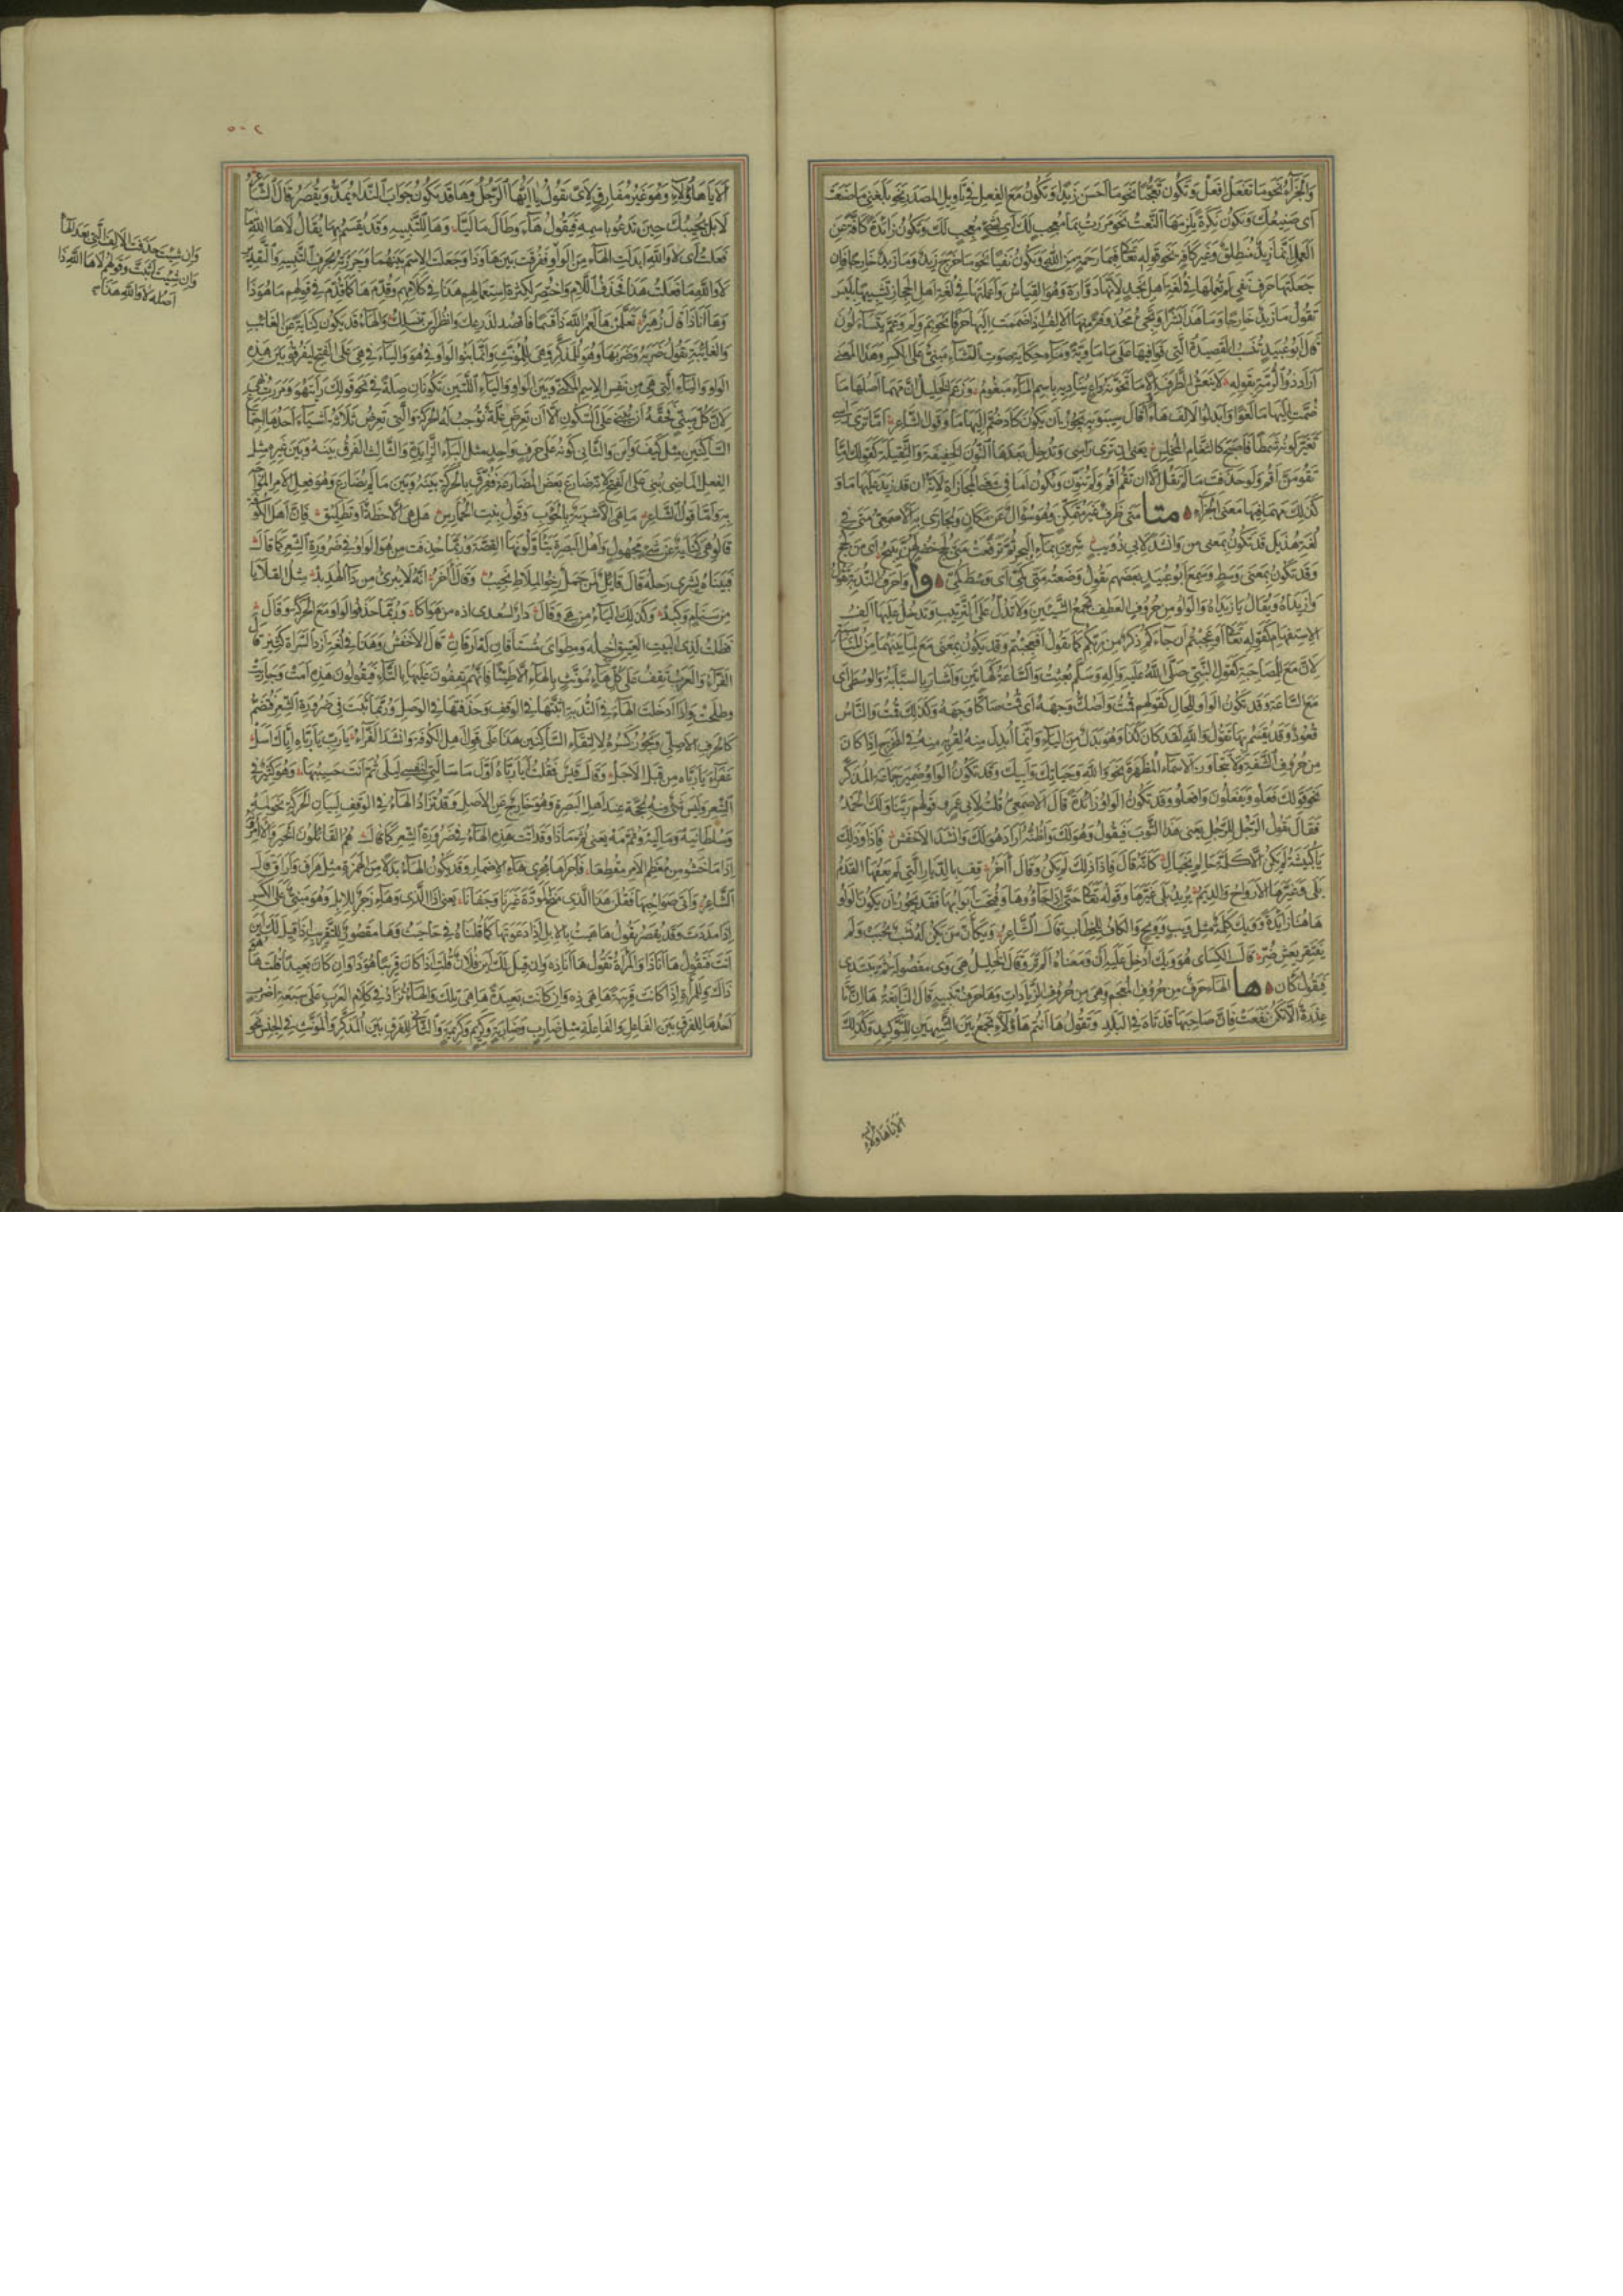 والجزاء نحو ما تفعل افعل وتكون تعجبا نحو ما احسن زيدا وتكون مع الفعل في تاويل المصدر نحو بلغني ما صنعت
اي صنيعك وتكون نكرة يلزمها النعت نحو مررت بما معجب لك اي بشيء معجب لك وتكون زائدة كافة عن
العمل نحو انما زيد منطلق وغير كافة نحو قوله تعالى فبما رحمة من الله وتكون نفيا نحو ما خرج زيد وما زيد خارجا فان
جعلتها حرف نفي لم تعملها في لغة اهل نجد لانها دوارة وهو القياس واعملتها في لغة اهل الحجاز تشبيها بليس
تقول ما زيد خارجا وما هذا بشرا وتجيء محذوفة منها الالف اذا ضممت اليها حرفا نحو بم ولم وعم يتساءلون
قال ابو عبيد تنسب القصيدة التي قوافيها على ما ماوية وماء حكاية صوت الشاء مبني على الكسر وهذا المعنى
اراد ذو الرمة بقوله لا ينعش الطرف الا ما تخونه داع يناديه باسم الماء مبغوم وزعم الخليل ان مهما اصلها ما
ضمت اليها ما لغوا وابدلوا الالف هاء قال سيبويه يجوز ان يكون كاذ ضم اليها ما وقول الشاعر اما تري راسي
تغير لونه شمطا فاصبح كالثغام المخلس يعني ان تري راسي وتدخل بعدها النون الخفيفة والثقيلة كقولك اما
تقومن اقم ولو حذفت ما لم تقل الا ان تقم اقم ولم تنون وتكون اما في معنى المجازاة لانه ان قد زيد عليها ما و
كذلك مهما فيها معنى الجزاء متا متى ظرف غير متمكن وهو سؤال عن مكان ويجازى به الاصمعي متى في
لغة هذيل قد تكون بمعنى من وانشد لابي ذؤيب شربن بماء البحر ثم ترفعت متى لجج خضر لهن نئيج اي من لجج
وقد تكون بمعنى وسط وسمع ابو عبيد بعضهم يقول وضعته متى كمي اي وسط كمي وا وا حرف الندبة تقول
وا زيداه ويقال يا زيداه والواو من حروف العطف تجمع الشيئين ولا تدل على الترتيب وتدخل عليها الف
الاستفهام كقوله تعالى اوعجبتم ان جاءكم ذكر من ربكم كما تقول افعجبتم وقد تكون بمعنى مع لما بينهما من المناسبة
لان مع للمصاحبة كقول النبي صلى الله عليه واله وسلم بعثت والساعة كهاتين واشار بالسبابة والوسطى اي
مع الساعة وقد تكون الواو للحال كقولهم قمت واصك وجهه اي قمت صاكا وجهه وكذلك قمت والناس
قعود وقد يقسم بها تقول والله لقد كان كذا وهو بدل من الباء وانما ابدل منه لقربه منه في المخرج اذ كان
من حروف الشفة ولا يتجاوز الاسماء المظهرة نحو والله وحياتك وابيك وقد تكون الواو ضمير جماعة المذكر
نحو قولك فعلوا ويفعلون وافعلوا وقد تكون الواو زائدة قال الاصمعي قلت لابي عمرو قولهم ربنا ولك الحمد
فقال يقول الرجل للرجل بعني هذا الثوب فيقول وهو لك واظنه اراد هو لك وانشد الاخفش فاذا وذلك
يا كبيشة لم يكن الا كلمة حالم بخيال كانه قال فاذا ذلك لم يكن وقال اخر قف بالديار التي لم يعفها القدم
بلى وغيرها الارواح والديم يريد بلى غيرها وقوله تعالى حتى اذا جاؤوها وفتحت ابوابها فقد يجوز ان يكون الواو
هاهنا زائدة وويك كلمة مثل ويب وويح والكاف للخطاب قال الشاعر ويكأن من يكن له نشب يحبب ولم
يفتقر يعش عيش ضر قال الكسائي هو ويك ادخل عليه ان ومعناه الم تر وقال الخليل هي وي مفصولة ثم تبتدئ
فيقول كان ها الهاء حرف من حروف المعجم وهي من حروف الزيادات وها حرف تنبيه قال النابغة ها ان تا
عذرة الا تكن نفعت فان صاحبها قد تاه في البلد وتقول ها انتم هؤلاء تجمع بين التنبيهين للتوكيد وكذلك
الا يا هاؤلاء
٥٠٢
الا يا هاؤلاء وهو غير مفارق لاي تقول يا ايها الرجل وها قد يكون جواب النداء يمد ويقصر قال الشاعر
لا بل يجيبك حين تدعو باسمه فيقول هاء وطال ما لبى وها للتنبيه وقد يقسم بها يقال لا ها الله ما
فعلت اي لا والله ابدلت الهاء من الواو ففرقت بين ها وذا وجعلت الاسم بينهما وجررته بحرف التنبيه والتقدير
لا والله ما فعلت هذا فحذف اللام واختصر لكثرة استعمالهم هذا في كلامهم وقدم ها كما قدم في قولهم ها هو ذا
وها انا ذا قال زهير تعلمن ها لعمر الله ذا قسما فاقصد لذرعك وانظر اين تنسلك والهاء قد يكون كناية عن الغائب
والغائبة تقول ضربه وضربها وهو للمذكر وهي للمؤنث وانما بنوا الواو في هو والياء في هي على الفتح ليفرقوا بين هذه
الواو والياء التي هي من نفس الاسم المكني وبين الواو والياء اللتين تكونان صلة في نحو قولك رايتهو ومررت بهي
لان كل مبني فحقه ان يبنى على السكون الا ان تعرض علة توجب له الحركة والتي تعرض ثلاثة اشياء احدها اجتماع
الساكنين مثل كيف واين والثاني كونه على حرف واحد مثل الباء الزايدة والثالث الفرق بينه وبين غيره مثل
الفعل الماضي بني على الفتح لانه ضارع بعض المضارعة ففرق بالحركة بينه وبين ما لم يضارع وهو فعل الامر المواجه
به واما قول الشاعر ما هي الا شربة بالحوءب وقول بنت الحمارس هل هي الا حظة او تطليق فان اهل الكوفة
قالوا هي كناية عن شيء مجهول واهل البصرة يتأولونها القصة وربما حذفت من هو الواو في ضرورة الشعر كما قال
فبيناه يشري رحله قال قائل لمن جمل رخو الملاط نجيب وقال اخر انه لا يبرئ داء الهدبد مثل القلايا
من سنام وكبد وكذلك الياء من هي وقال دار لسعدى اذه من هواكا وربما حذفوا الواو مع الحركة وقال
فظلت لدى البيت العتيق اخيله ومطواي مشتاقان له ارقان قال الاخفش وهذا في لغة ازد السراة كثير قال
الفراء والعرب تقف على كل هاء مؤنث بالهاء الا طيئا فانهم يقفون عليها بالتاء فيقولون هذه امت وجاريت
وطلحت واذا ادخلت الهاء في الندبة اثبتها في الوقف وحذفتها في الوصل وربما ثبتت في ضرورة الشعر فتضم
كالحرف الاصلي ويجوز كسره لالتقاء الساكنين هذا على قول اهل الكوفة وانشد الفراء يا رب يا رباه اياك اسل
عفراء يا رباه من قبل الاجل وقال قيس فقلت ايا رباه اول ما سالتي لنفسي ليلى ثم انت حسيبها وهو كثير في
الشعر وليس شيء منه بحجة عند اهل البصرة وهو خارج عن الاصل وقد تزاد الهاء في الوقف لبيان الحركة نحو لمه
وسلطانيه وماليه وثم مه يعني ثم ماذا وقد اتت هذه الهاء في ضرورة الشعر كما قال هم القائلون الخير والآمرونه
اذا ما خشوا من معظم الامر مفظعا فاجراها مجرى هاء الاضمار وقد يكون الهاء بدلا من الهمزة مثل هراق واراق قال
الشاعر واتى صواحبها فقلن هذا الذي منح المودة غيرنا وجفانا يعني اذا الذي وهاء زجر للابل وهو مبني على الكسر
اذا مددت وقد يقصر تقول هاهيت بالابل اذا دعوتها كما قلناه في حاحيت وها مقصور للتقريب اذا قيل لك اين
انت فتقول ها انا ذا والمراة تقول ها انا ذه وان قيل لك اين فلان قلت اذا كان قريبا ها هو ذا وان كان بعيدا قلت ها هو
ذاك وللمرأة اذا كانت قريبة ها هي ذه وان كانت بعيدة ها هي تلك والهاء تزاد في كلام العرب على سبعة اضرب
احدها للفرق بين الفاعل والفاعلة مثل ضارب وضاربة وكريم وكريمة والثاني للفرق بين المذكر والمؤنث في الجنس نحو
وان شئت حذفت الالف التي بعد الهاء
وان شئت اثبت وقولهم لا ها الله ذا
اصله لا والله هذا